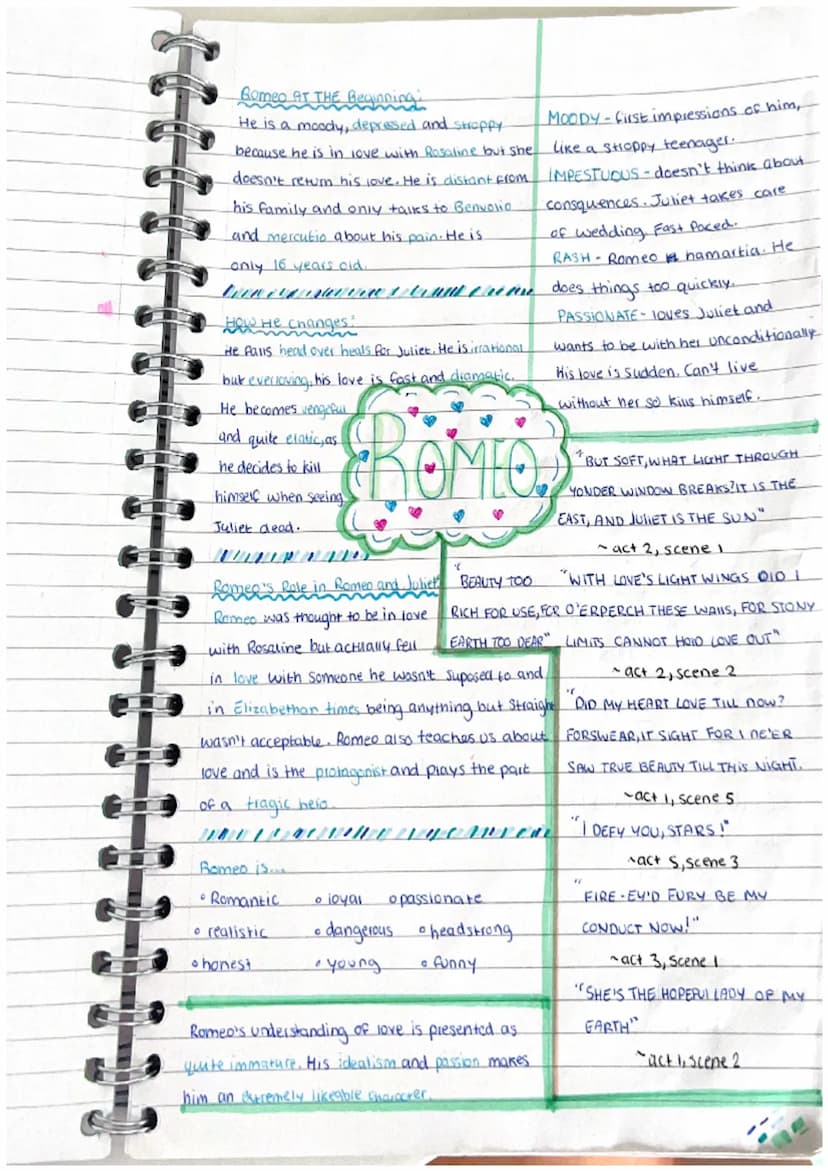 Romeo AT THE Beginning:
He is a moody, depressed and stroppy
because he is in love with Rosaline but she
doesn't return his love. He is distant from
his family and only talks to Benvolio
and mercutio about his pain. He is
only 16 years old.
How He Changes:
He falls head over heals for Juliet. He is irrational
but everloving, his love is fast and dramatic.
He becomes vengeful
and quite eratic, as
he decides to kill
himself when seeing
Juliet dead.
Romeo's Role in Romeo and Juliet
Romeo was thought to be in love
with Rosaline but actually fell
in love with someone he wasn't suposed to and
in Elizabethan times being anything but straight
wasn't acceptable. Romeo also teaches us about
love and is the protagonist and plays the part
of a tragic hero.
Romeo is...
Romantic
loyal
passionate
realistic
dangerous
headstrong
honest
young
funny
Romeo's understanding of love is presented as
quite immature. His idealism and passion makes
him an extremely likeable character.
ROMEO
MOODY - first impressions of him,
like a stroppy teenager.
IMPESTUOUS - doesn't think about
consquences. Juliet takes care
of wedding. Fast Paced.
RASH - Romeo hamartia. He
does things too quickly.
PASSIONATE - loves Juliet and
wants to be with her unconditionally
His love is sudden. Can't live
without her so kills himself.
"BUT SOFT, WHAT LIGHT THROUGH
YONDER WINDOW BREAKS? IT IS THE
EAST, AND JULIET IS THE SUN"
~ act 2, scene 1
"BEAUTY TOO
RICH FOR USE, FOR
EARTH TOO DEAR"
"WITH LOVE'S LIGHT WINGS DID I
O'ERPERCH THESE WALLS, FOR STONY
LIMITS CANNOT HOLD LOVE OUT"
~ act 2, scene 2
"DID MY HEART LOVE TILL NOW?
FORSWEAR, IT SIGHT FOR I NE'ER
SAW TRUE BEAUTY TILL THIS NIGHT.
~act 1, scene 5
"I DEFY YOU, STARS!"
~act 5, scene 3
"FIRE-EY'D FURY BE MY
CONDUCT NOW!"
~act 3, scene 1
"SHE'S THE HOPEFUL LADY OF MY
EARTH"
~act 1, scene 2